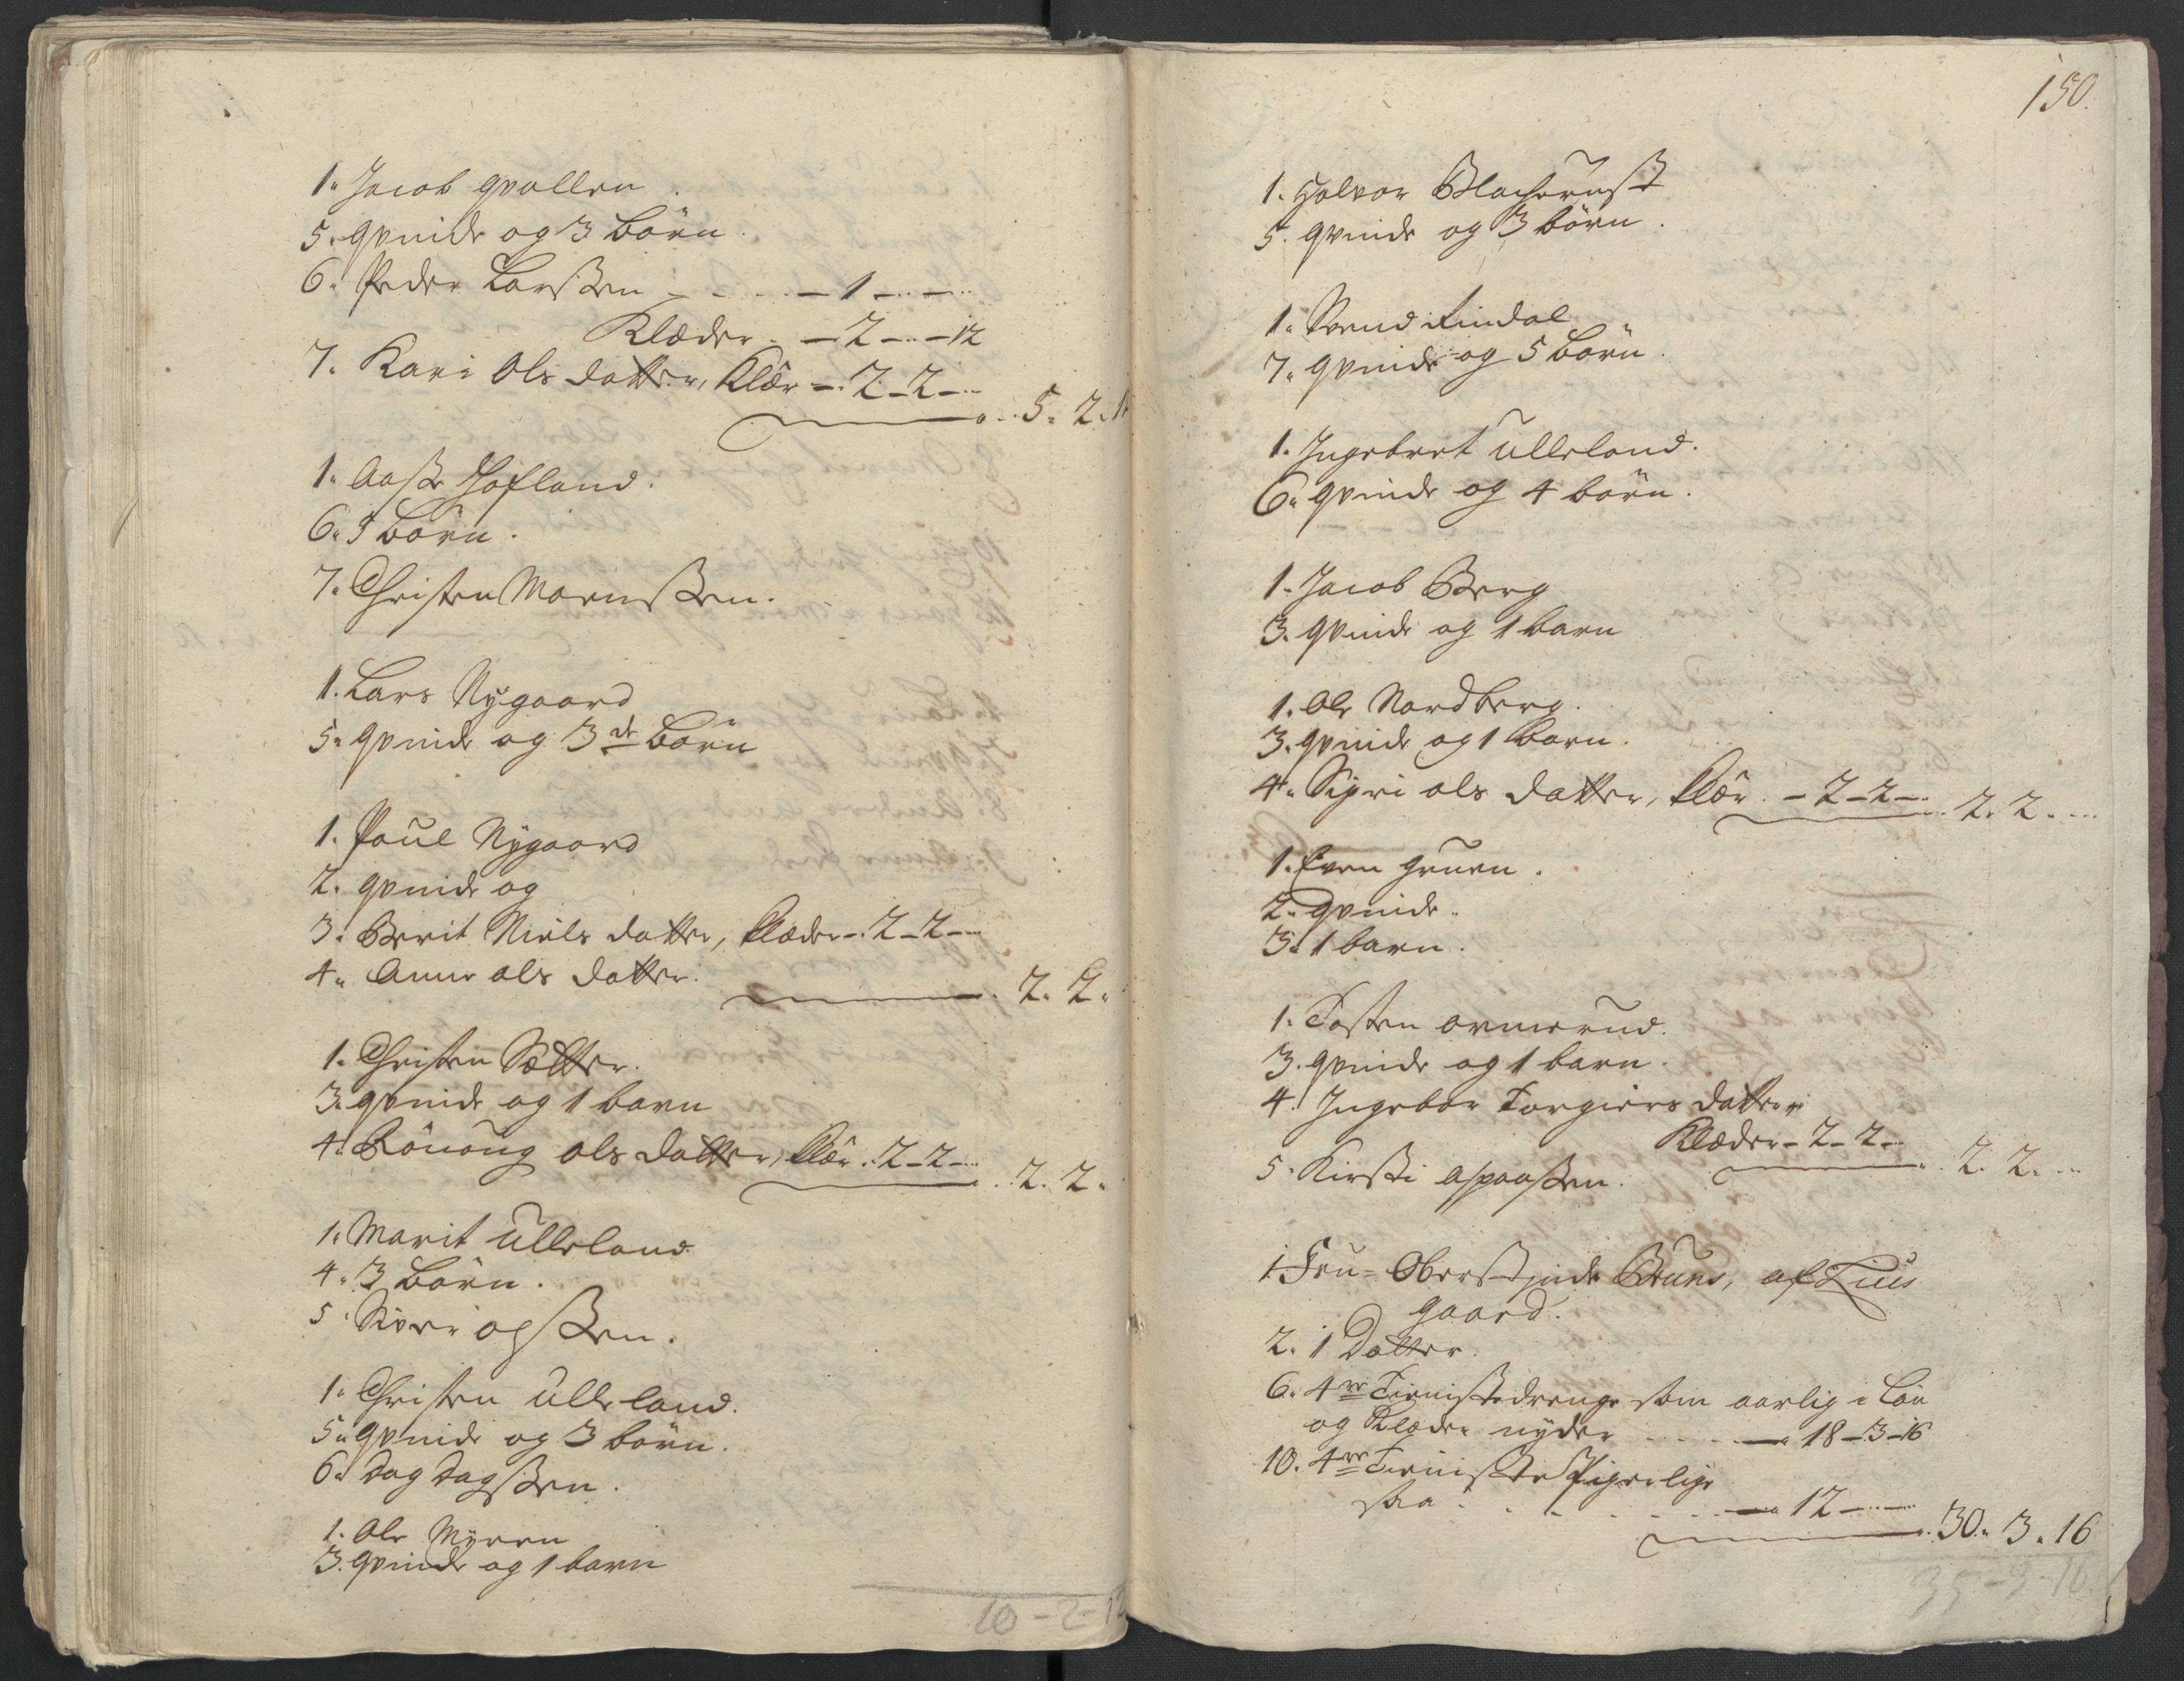 1. Jacob qvallen
5. qvinde og 3 börn
6. Peder Larssen - - - - 1 - -
Klæder - 2 - 12
7. Kari Ols datter, Klær - 2 - 2 -
5. 2. 1
1. Aasse Hofland.
6. 5 börn.
7. Christen Monssen.
1. Lars Nygaard
5. qvinde og 3de börn
1. Poul Nygaard
2. qvinde og
3. Berit Niels datter, klæder - 2 - 2 -
4. Anne ols datter.
2. 2.
1. Christen Sætter.
3. qvinde og 1 barn
4. Rönoug ols datter, klær. 2 - 2 -
2. 2.
1. Marit Ulleland
4. 3 börn.
5. Siver olssen.
1. Christen Ulleland.
5. qvinde og 3 börn.
6. Dag Dagssen.
1. Ole Myren
3. qvinde og 1 barn
10 - 2 - 12
150.
1. Halvor
5. qvinde og 3 börn.
1. Svend Lindal
7. qvinde og 5 börn
1. Ingebret Ulleland.
6. qvinde og 4 börn.
1. Jacob Berg
3. qvinde og 1 barn
1. Ole Nordberg.
3. qvinde og 1 barn.
4. Sigri ols datter, klær. - 2 - 2 - 2. 2.
1. Even gruen.
2. qvinde.
3. 1 barn.
1. Tosten ormerud.
3. qvinde og 1 barn.
4. Ingebor Torgiers datter
Klæder - 2 - 2 -
2. 2.
5. Kirsti
1 Fru Oberstinde Bruns, af
gaard.
2. 1 Datter.
6. 4re Tienistedrenge som aarlig i Lön
og Klæder nyder - - - 18 - 3 - 16
10. 4re Tieniste Piger lige
saa - - - 12 - -
30. 3. 16
35 - 3 - 16